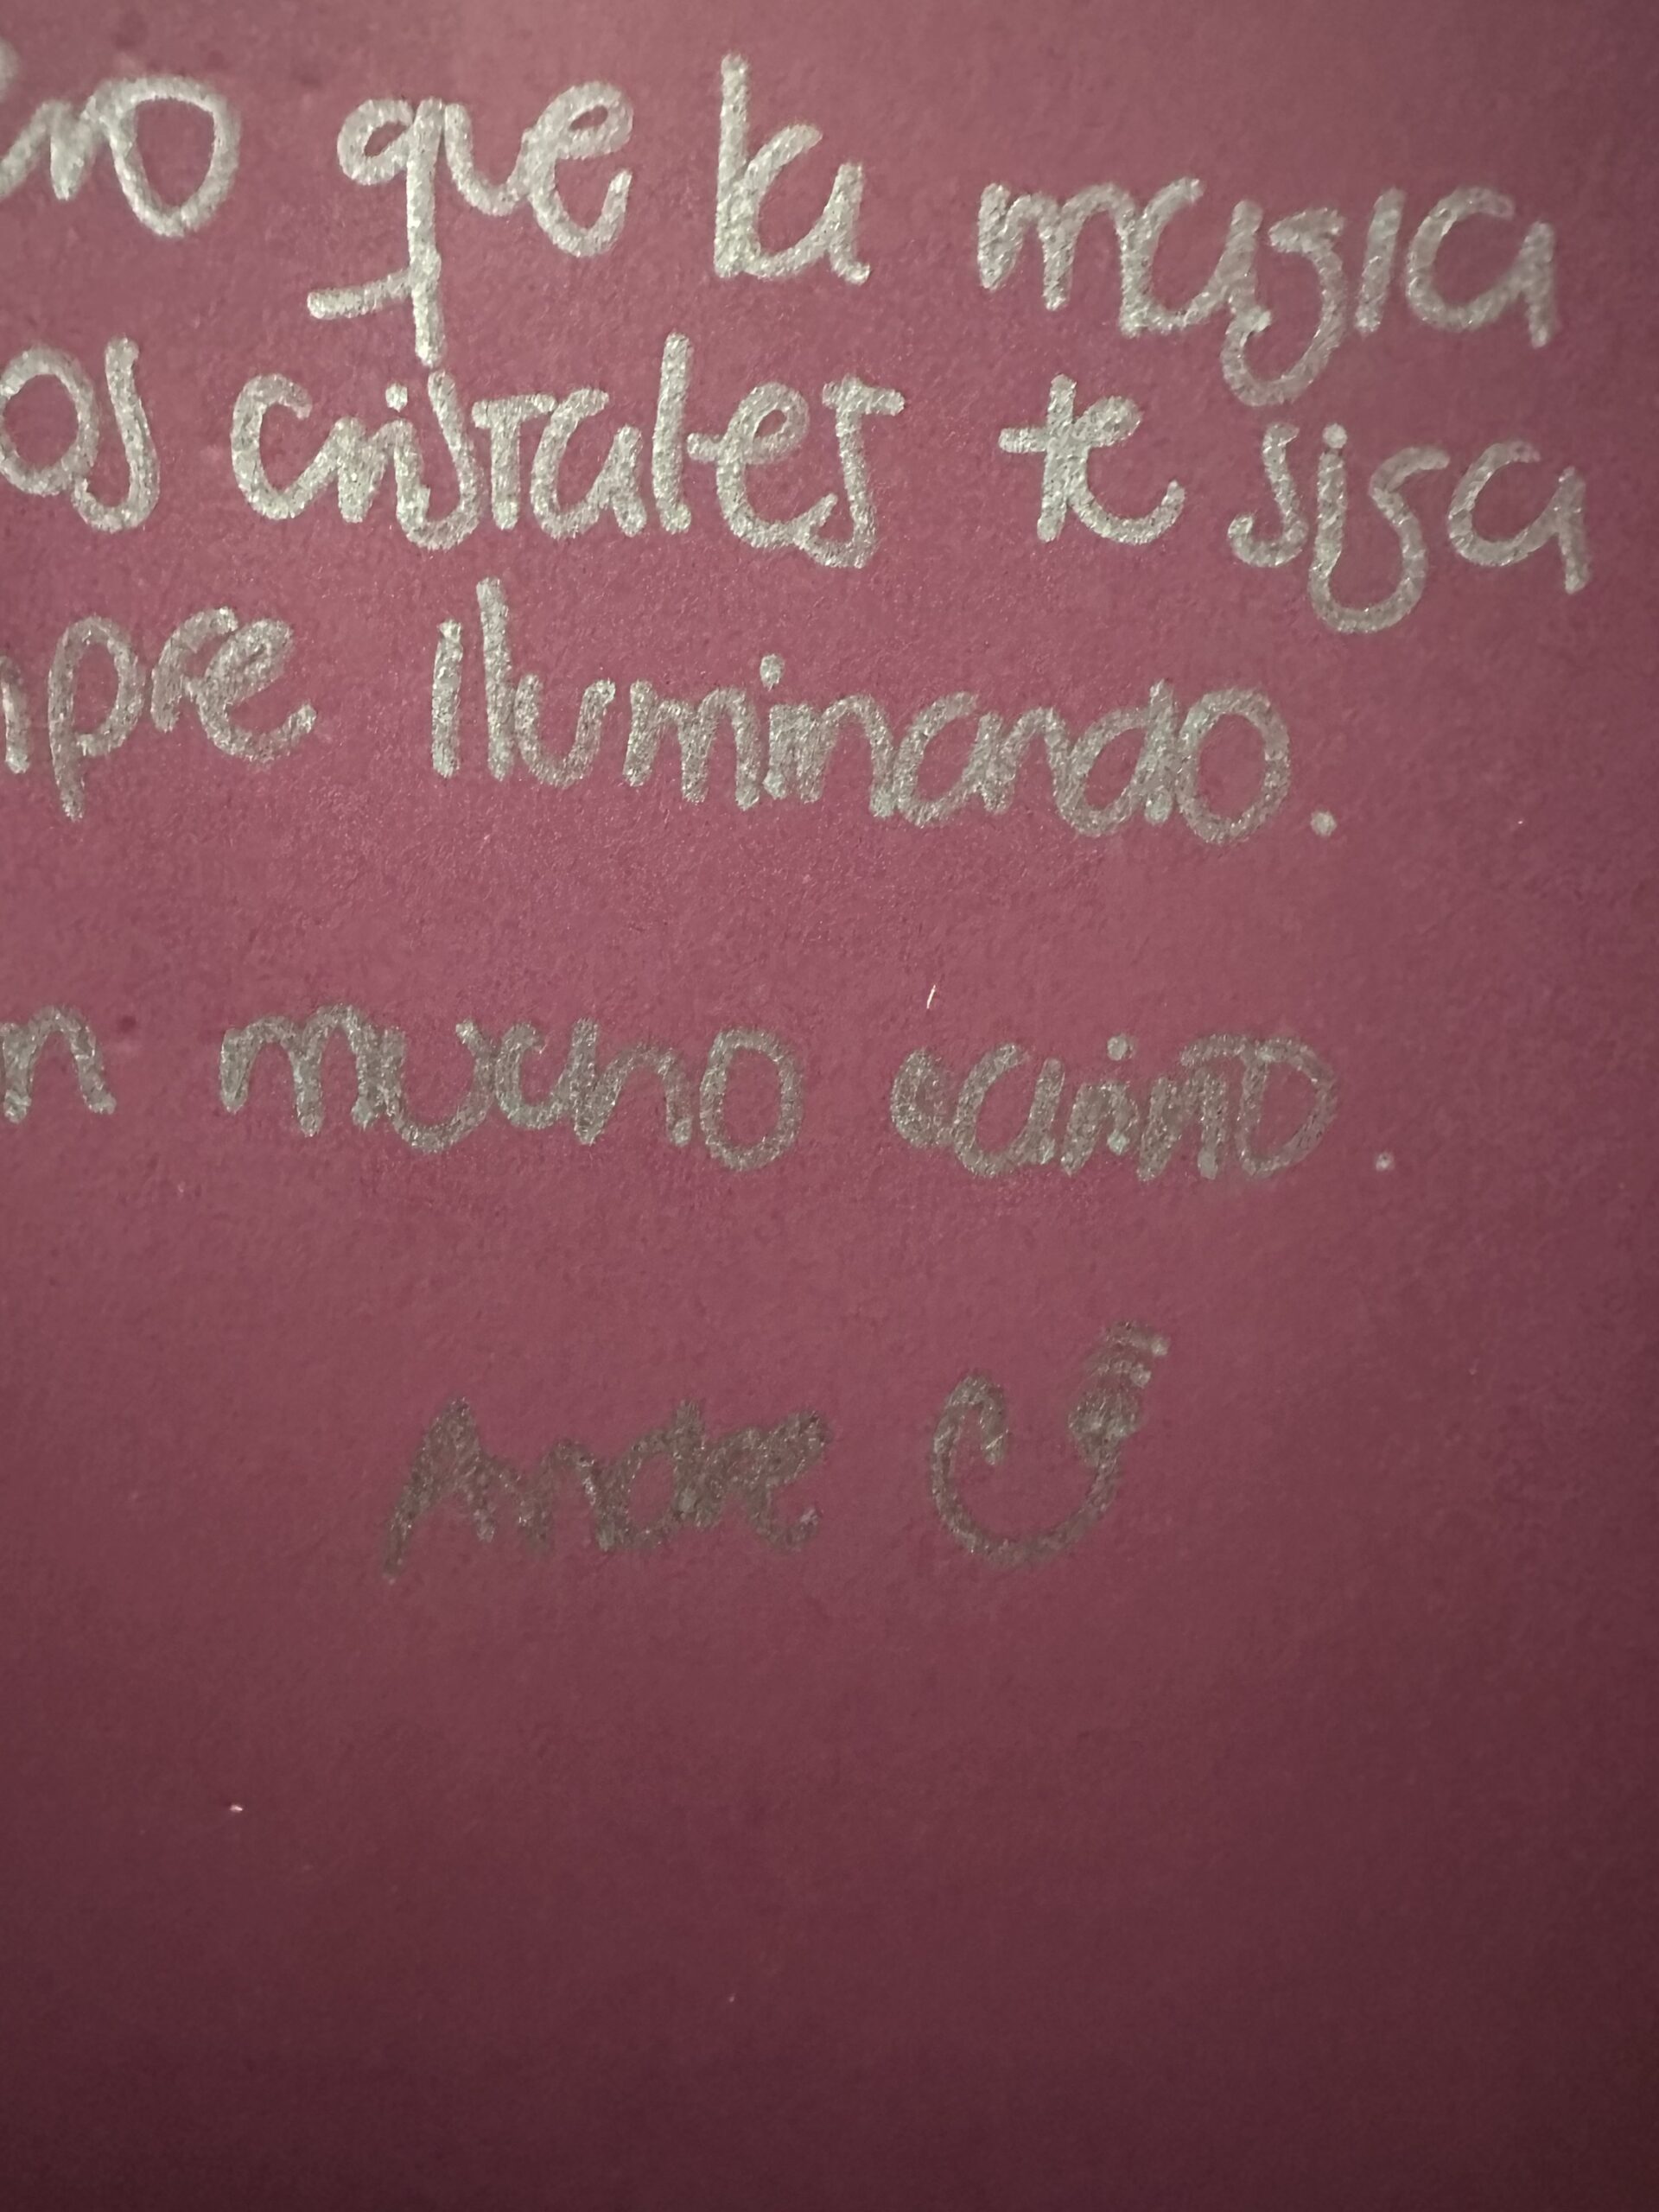 que la magia
os cristales te siga
mpre Iluminando.
n mucho cariño.
Andre